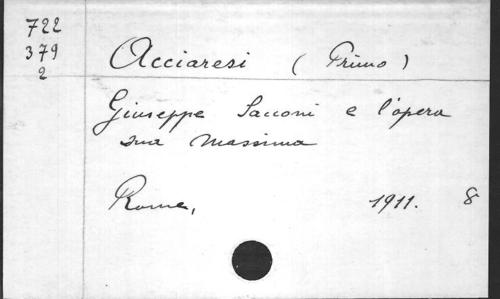 722
379
2
Acciaresi (Primo)
Giuseppe Sacconi e l'opera
sua massima
Rome, 1911. 8